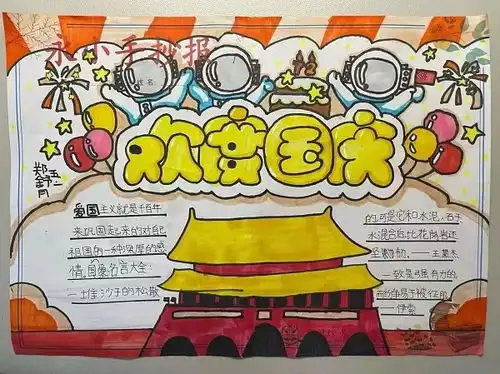 永小手抄报
姓名:
欢度国庆
五二
郑舒月
爱国主义就是千百年
来巩固起来的对自
祖国的一种深厚的感
情,国爱名言大全:
一堆沙子的松散
的,可是它和水泥,石子
水混合后,比花岗岩还
坚韧。——王景杰
—致是强有力的
而纷争易于被征服
——伊索